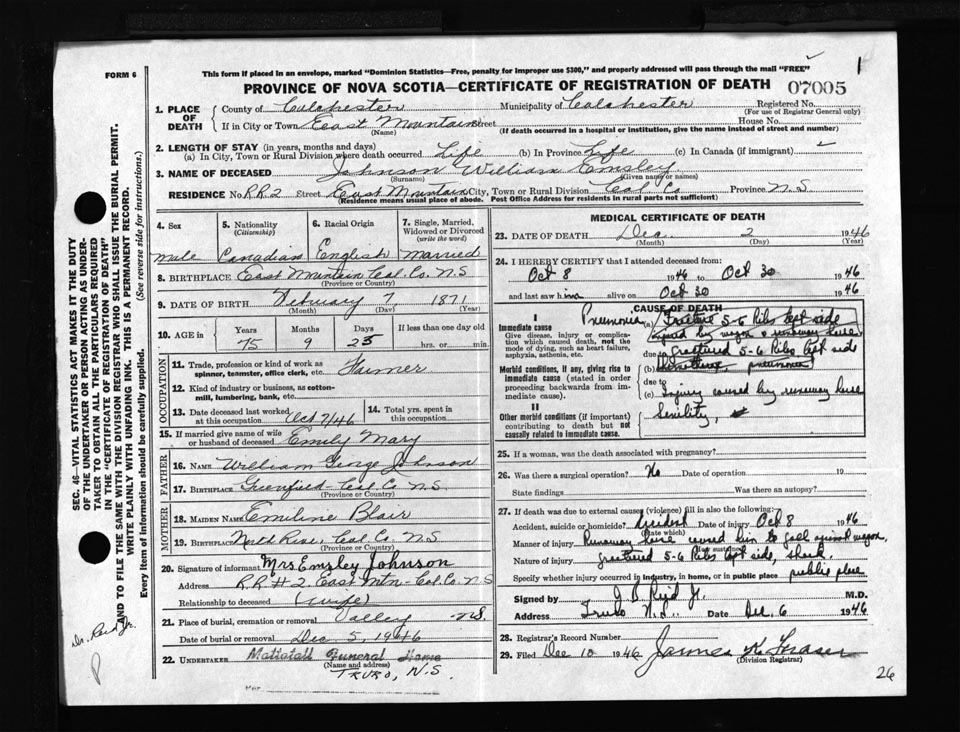 This form if placed in an envelope, marked "Dominion Statistics—Free, penalty for improper use $300," and properly addressed will pass through the mail "FREE"
1
FORM 6
PROVINCE OF NOVA SCOTIA—CERTIFICATE OF REGISTRATION OF DEATH 07005
1. PLACE OF DEATH
County of Colchester Municipality of Colchester Registered No.
(For use of Registrar General only)
If in City or Town East Mountain Street House No.
(Name) (If death occurred in a hospital or institution, give the name instead of street and number)
2. LENGTH OF STAY (in years, months and days)
(a) In City, Town or Rural Division where death occurred Life (b) In Province Life (c) In Canada (if immigrant)
3. NAME OF DECEASED Johnson William Emsley
(Surname) (Given name or names)
RESIDENCE No. RR2 Street East Mountain City, Town or Rural Division Col Co Province N.S
(Residence means usual place of abode. Post Office Address for residents in rural parts not sufficient)
4. Sex
male
5. Nationality
(Citizenship)
Canadian
6. Racial Origin
English
7. Single, Married, Widowed or Divorced
(write the word)
married
8. BIRTHPLACE East Mountain Col. Co. N.S
(Province or Country)
9. DATE OF BIRTH February 7, 1871
(Month) (Day) (Year)
10. AGE in Years Months Days If less than one day old
75 9 25 hrs. or min.
OCCUPATION
11. Trade, profession or kind of work as spinner, teamster, office clerk, etc. Farmer
12. Kind of industry or business, as cotton-mill, lumbering, bank, etc.
13. Date deceased last worked at this occupation Oct 7/46
14. Total yrs. spent in this occupation
15. If married give name of wife or husband of deceased Emily Mary
FATHER
16. NAME William George Johnson
17. BIRTHPLACE Greenfield Col. Co N.S
(Province or Country)
MOTHER
18. MAIDEN NAME Emiline Blair
19. BIRTHPLACE North River Col. Co N.S
(Province or Country)
20. Signature of informant Mrs Emsley Johnson
Address R.R #2 East Mtn Col. Co. N.S
Relationship to deceased (wife)
21. Place of burial, cremation or removal Valley N.S.
Date of burial or removal Dec 5, 1946
22. UNDERTAKER Mattatall Funeral Home
(Name and address)
TRURO, N.S.
MEDICAL CERTIFICATE OF DEATH
23. DATE OF DEATH Dec. 2 1946
(Month) (Day) (Year)
24. I HEREBY CERTIFY that I attended deceased from:
Oct 8 1946 to Oct 30 1946
and last saw him alive on Oct 30 1946
CAUSE OF DEATH
I
Immediate cause
Give disease, injury or complication which caused death, not the mode of dying, such as heart failure, asphyxia, asthenia, etc.
Pneumonia (a) Fracture 5-6 Ribs left side
injured by wagon & runaway horse
due to fractured 5-6 Ribs left side
Morbid conditions, if any, giving rise to immediate cause (stated in order proceeding backwards from immediate cause).
(b) pneumonia
due to
(c) injury caused by runaway horse
II
Other morbid conditions (if important) contributing to death but not causally related to immediate cause.
Senility,
25. If a woman, was the death associated with pregnancy?
26. Was there a surgical operation? No Date of operation 19
State findings Was there an autopsy?
27. If death was due to external causes (violence) fill in also the following:
Accident, suicide or homicide? Accident Date of injury Oct 8 1946
(State which)
Manner of injury Runaway horse caused him to fall against wagon,
Nature of injury fractured 5-6 Ribs left side, shock.
Specify whether injury occurred in industry, in home, or in public place public place
Signed by J B Reid Jr. M.D.
Address Truro N.S. Date Dec. 6 1946
28. Registrar's Record Number
29. Filed Dec 10 1946 James K. Fraser
(Division Registrar)
26
SEC. 46—VITAL STATISTICS ACT MAKES IT THE DUTY
OF THE UNDERTAKER OR PERSON ACTING AS UNDER-
TAKER TO OBTAIN ALL THE PARTICULARS REQUIRED
IN THE "CERTIFICATE OF REGISTRATION OF DEATH"
AND TO FILE THE SAME WITH THE DIVISION REGISTRAR WHO SHALL ISSUE THE BURIAL PERMIT.
WRITE PLAINLY WITH UNFADING INK. THIS IS A PERMANENT RECORD.
Every item of information should be carefully supplied. (See reverse side for instructions.)
Dr. Reid Jr.